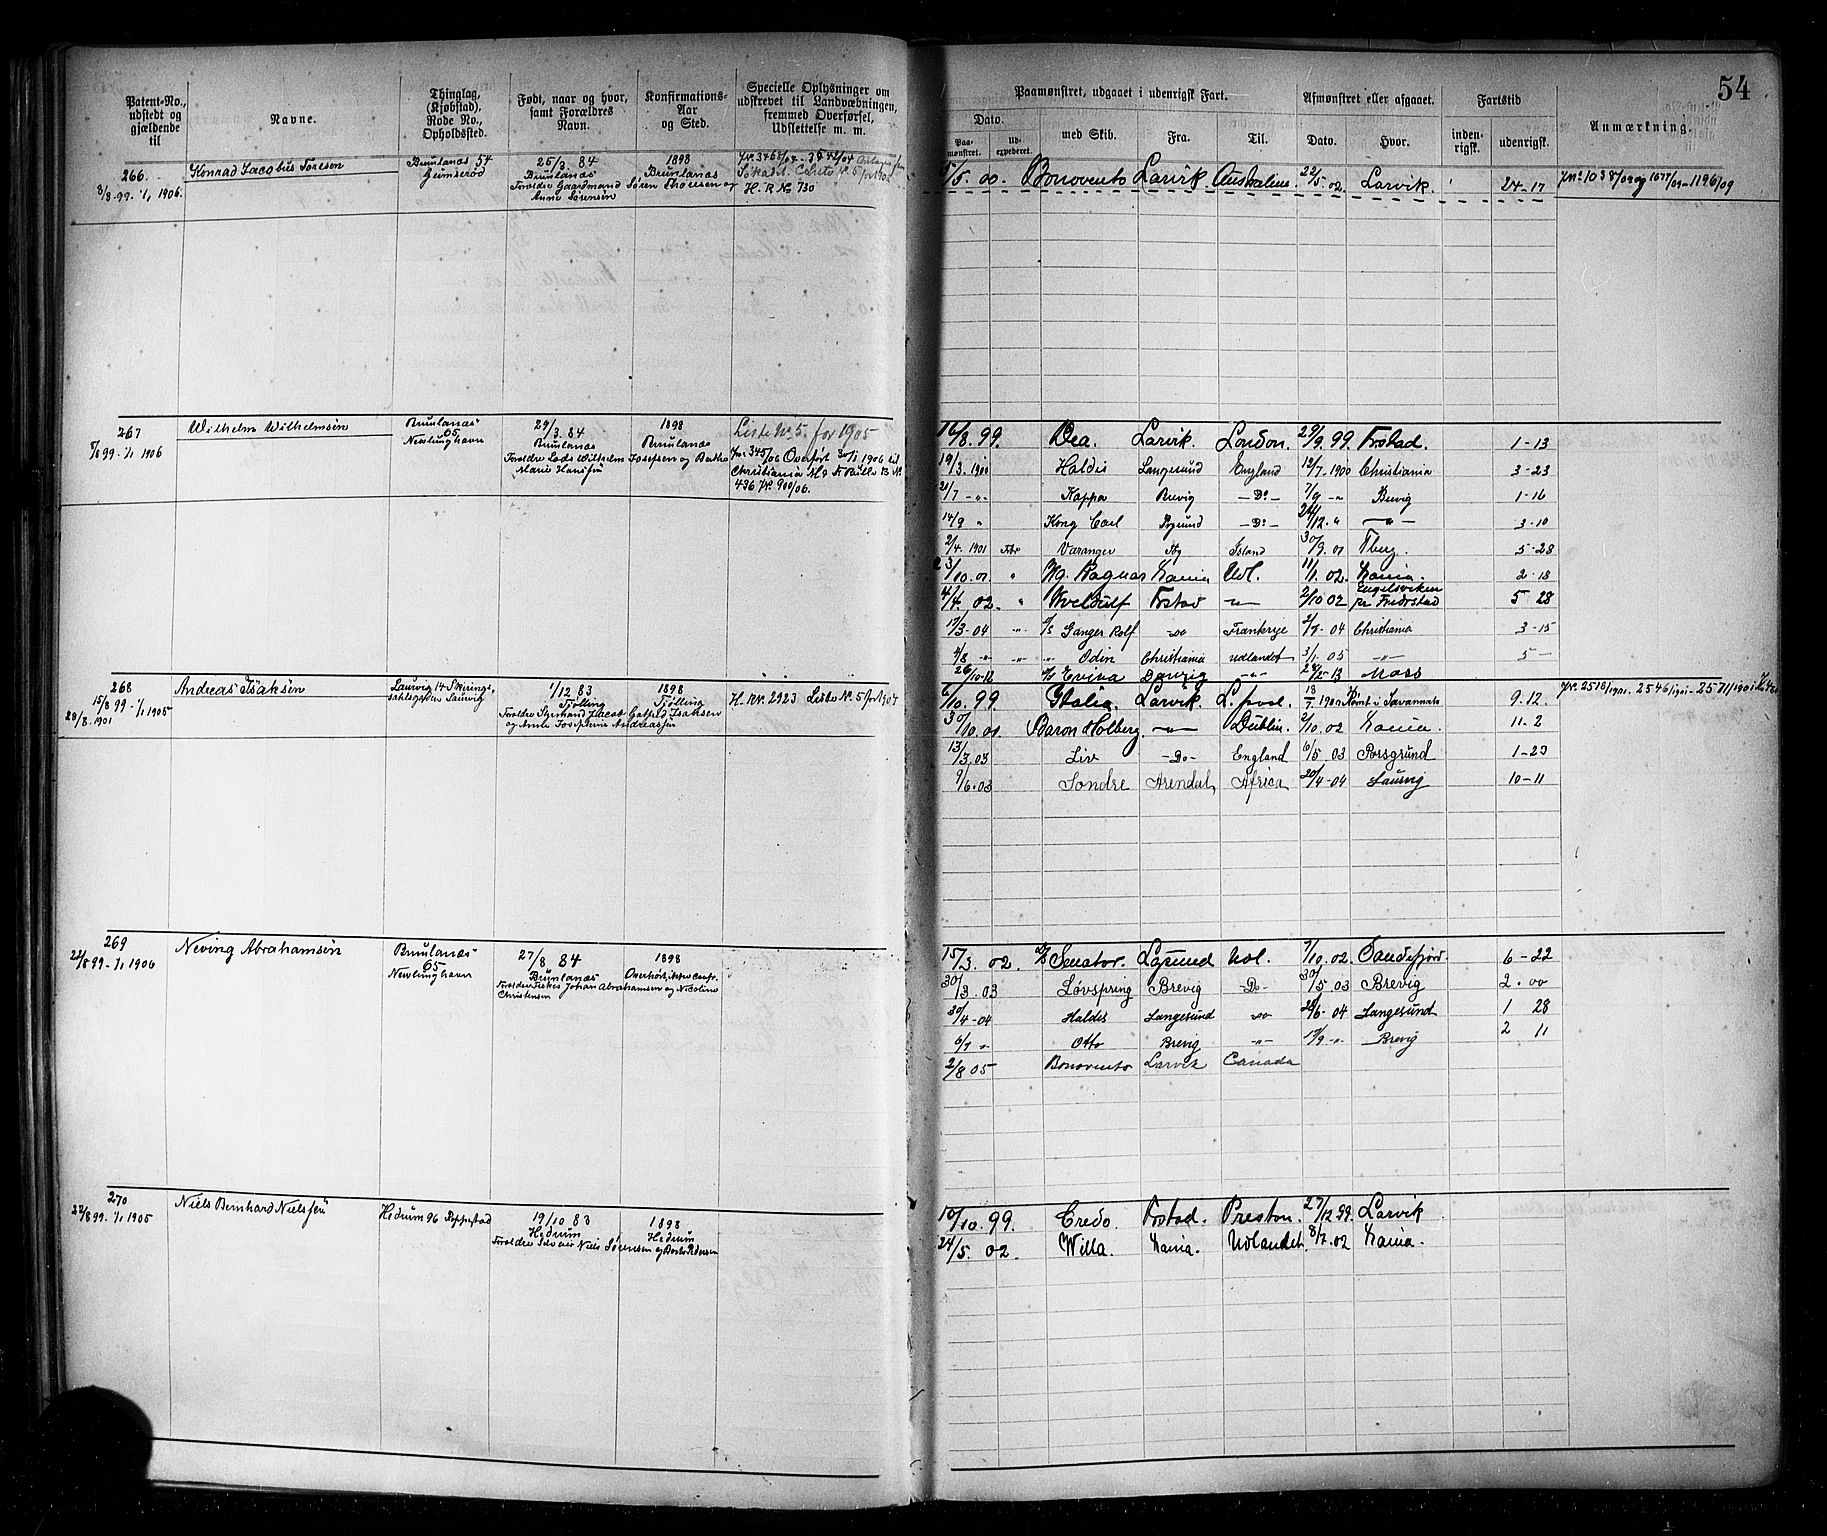 54
Patent-No., udstedt og gjældende til
Navne.
Thinglag, (Kjøbstad), Rode No., Opholdssted.
Født, naar og hvor, samt Forældres Navn.
Konfirmations-Aar og Sted.
Specielle Oplysninger om udskrevet til Landvæbningen, fremmed Overførsel, Udslettelse m. m.
Paamønstret, udgaaet i udenrigsk Fart.
Dato.
Paamønstret.
Udexpederet.
med Skib.
Fra.
Til.
Afmønstret eller afgaaet.
Dato.
Hvor.
Fartstid
indenrigsk.
udenrigsk.
Anmærkning.
266.
3/8-99-1/1 1906.
Konrad Jacobus Toresen
Brunlanæs 54
Gumserød
25/3 84
Brunlanæs
Forældre Gaardmand Søren Thoresen og
Anne Sørensen
1898
Brunlanæs
H. R. No 730
1/5. 00. Bonovento Larvik. Australien. 22/5. 02. Larvik. 24-17
267
1/1 1906
Wilhelm Wilhelmsen
Brunlanæs
65
Nevlunghavn
29/3. 84
Brunlanæs
Forældre Lods Wilhelm Josefsen og Berthe
Marie Hansson
1898
Brunlanæs
Liste No 5. for 1905
Jnr 345/06 Overført 30/1 1906 til
Christiania
436 Jno 900/06.
16/8. 99. Dea. Larvik. London. 29/9. 99. Frstad. 1-13
19/3. 1900 Haldis Langesund England 12/7. 1900 Christiania 3-23
21/7 -"- Kappa Brevig -Do- 7/9 -"- Brevig 1-16
14/9 " Kong Carl Prsgrund -Do- 24/12. " -"- 3-10
2/4. 1901 Varanger Island 30/9. 01 Tberg. 5-28
3/10. 01 " Ragnar Xania Udl. 11/1. 02. Xania. 2-18
4/4. 02. " Kveldulf Frstad -"- 2/10 02 Engelsviken pr Fredrstad 5 28
17/3-04 -"- Ganger Rolf -"- Frankrige 2/7-04 Christiania 3-15
4/8 -"- -"- -"- Odin Christiania udlandet 3/1. 05 -"- 5-
26/10-12 Evina Danzig -"- 24/12-13 Moss
268
15/8 99-1/1 1905
29/8. 1901
Andreas Isaksen
Laurvig 14 Skirings-
salsgaden Laurvig
1/12 83
Tjølling
Forældre Jacob Gotfred Isaksen
og Josephine Andreassen
1898
Tjølling
H. Rnr. 2923 Liste No 5 for 1904
6/10. 99. Italia. Larvik L.pool. 18/7. 1900 Rømt i Savannah 9.12.
Jnr. 2510/1901. 2546/1901-2571/1901
30/10. 01 Baron Holberg. -"- Dublin. 2/10. 02 Xania. 11-2
13/3. 03 Liv -Do- England 6/5 03 Porsgrund 1-23
9/6. 03 Søndre Arendal Africa 20/4-04 Laurvig 10-11
269
22/8 99-1/1 1906
Neving Abrahamsen
Brunlanæs
65
Nevlunghavn
27/8 84
Brunlanæs
Forældre Fisker Johan Abrahamsen og Nicoline
Christensen
1898
Overhørt, ikke conf.
15/3. 02. Senator. Lgsund Udl. 7/10. 02. Sandefjord 6-22
30/3. 03 Løvspring Brevig -Do- 30/5 03 Brevig 2.00
30/4-04 Haldis Langesund -"- 28/6-04 Langesund 1 28
6/7 " Otto Brevig -"- 17/9 -"- Brevig 2 11
2/8 05 Bonovento Larvik Canada
270
22/8 99. 1/1 1905
Niels Bernhard Nielssen
Hedrum 96 Roppestad
19/10 83
Hedrum
Forældre Niels Sørensen og Berte Pedersen
1898
Hedrum
10/10. 99. Credo. Frstad. Preston. 27/12 99. Larvik
24/5. 02. Willa. Xania. Udlandet. 8/7. 02 Xania.